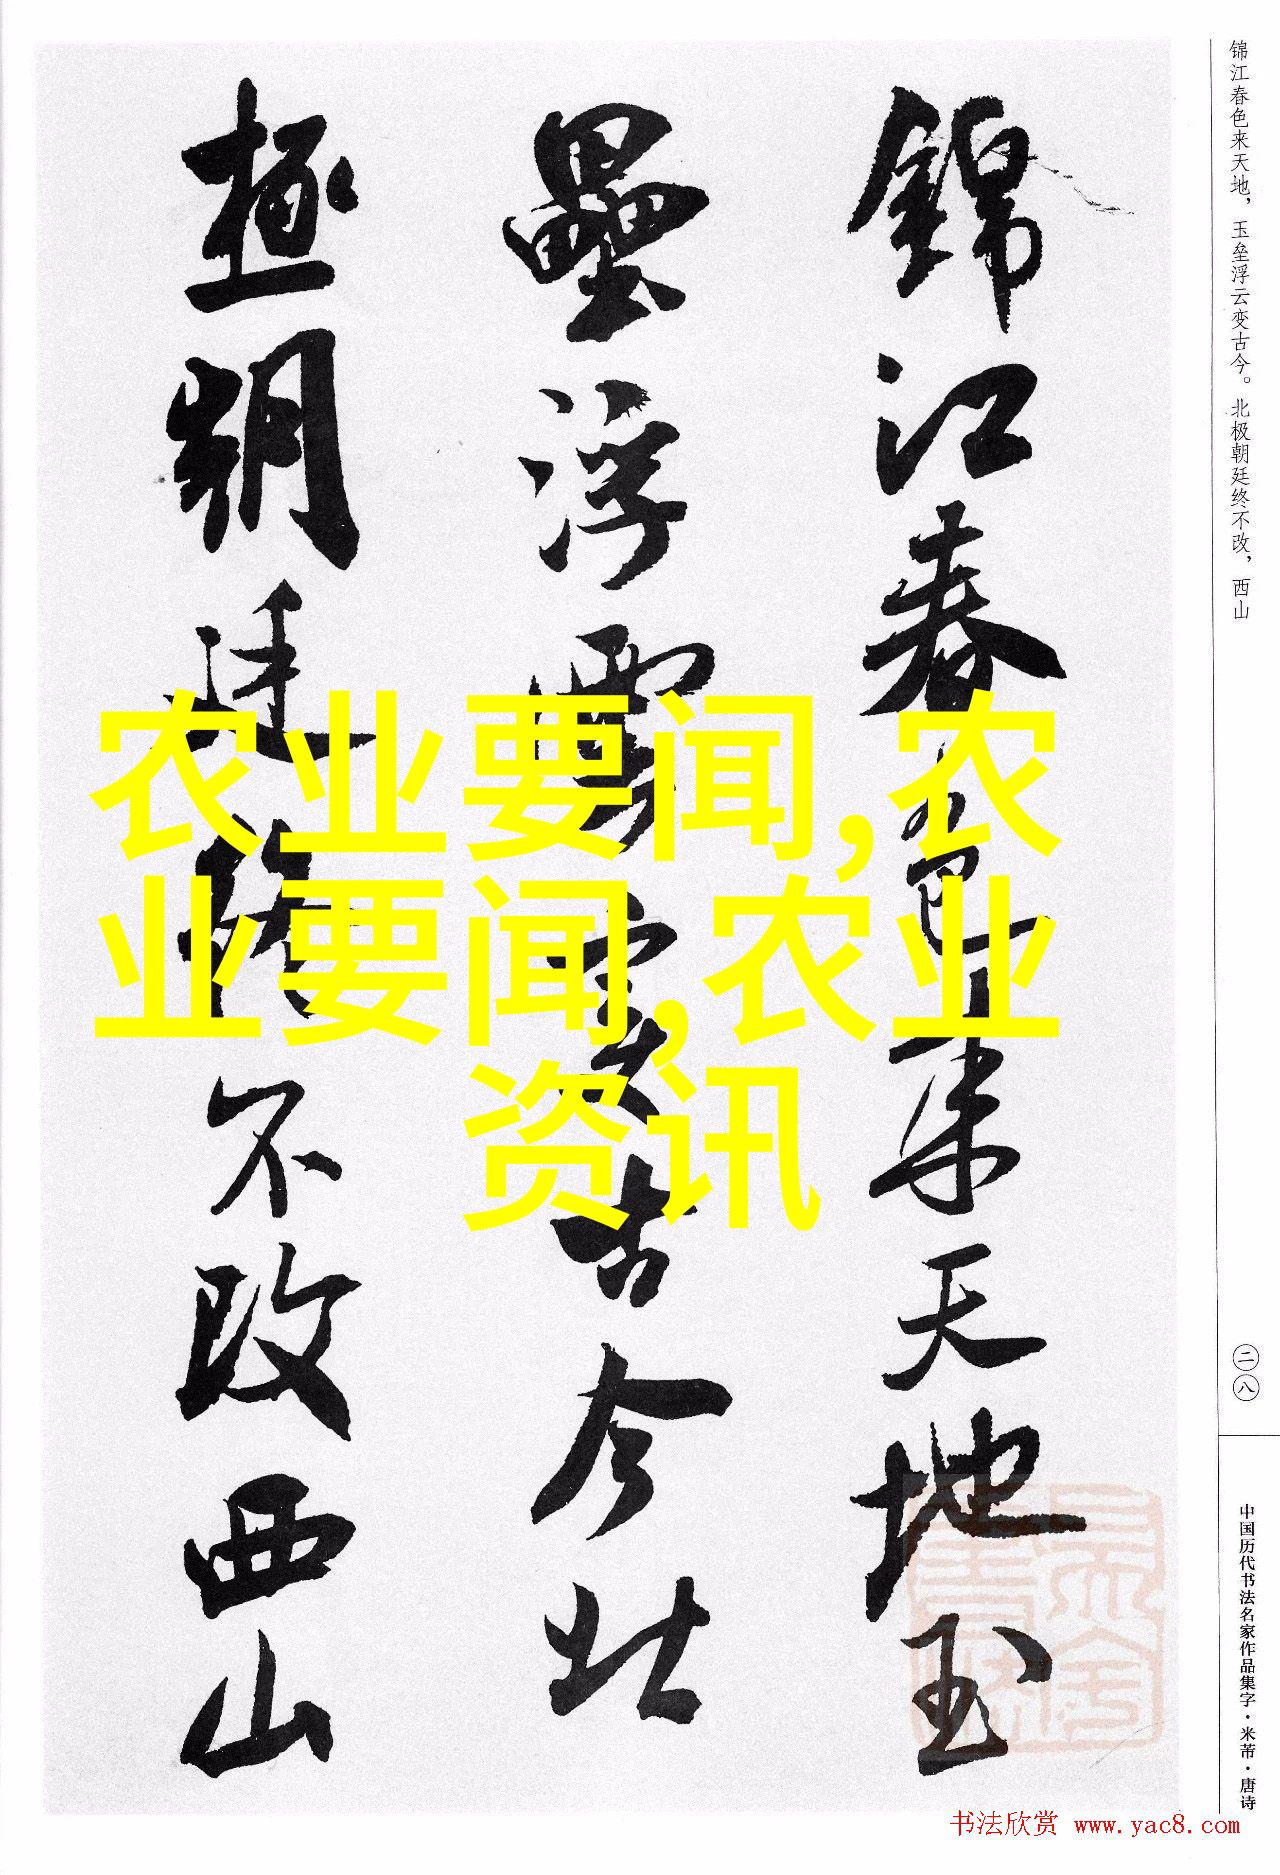 錦江春色来天地玉
壘浮雲變古今北
極朝廷終不改西山
农业要闻,农
业要闻,农业
资讯
锦江春色来天地，玉垒浮云变古今。北极朝廷终不改，西山
二八
中国历代书法名家作品集字·米芾·唐诗
书法欣赏 www.yac8.com